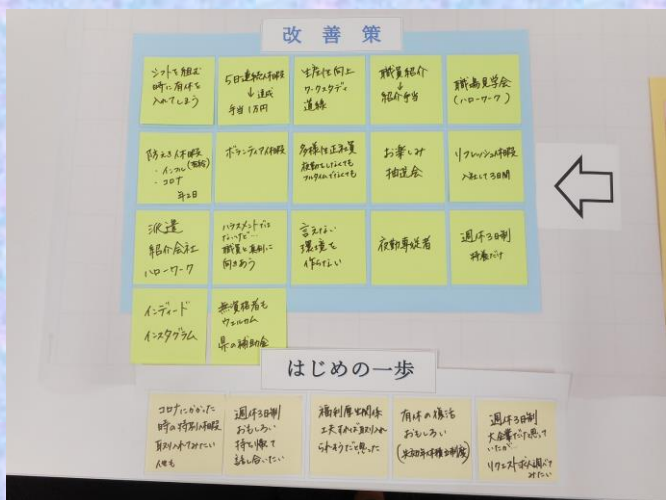 改善策
シフトを組む
時に有休を
入れてしまう
5日連続休暇
↓達成
手当1万円
生産性向上
ワークスタディ
導線
職員紹介
↓
紹介手当
職場見学会
(ハローワーク)
防えき休暇
(有給)
・インフル
・コロナ
年2日
ボランティア休暇
多様性正社員
夜勤をしなくても
フルタイムでなくても
お楽しみ
抽選会
リフレッシュ休暇
入社して3日間
派遣
紹介会社
ハローワーク
ハラスメントでは
ないけど…
職員と真剣に
向きあう
言えない
環境を
作らない
夜勤専従者
週休3日制
特養だけ
インディード
インスタグラム
無資格者も
ウェルカム
県の補助金
はじめの一歩
コロナにかかった
時の特別休暇
取り入れてみたい
週休3日制
おもしろい
持ち帰って
話し合いたい
福利厚生関係
工夫すれば取り入れ
られそうだと思った
有休の復活
おもしろい
週休3日制
大企業だけと思って
いたが
リクエスト求人調べて
みたい